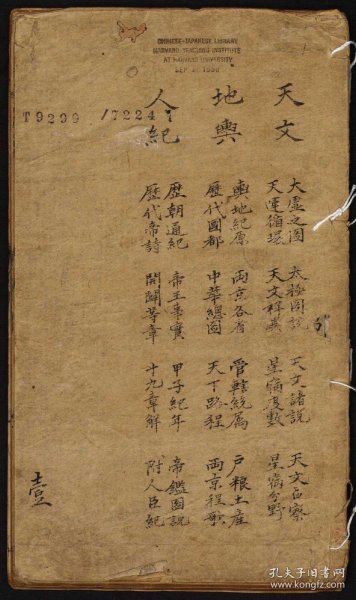 CHINESE-JAPANESE LIBRARY
HARVARD-YENCHING INSTITUTE
AT HARVARD UNIVERSITY
T9299 /7224
天文
大虛之圖 太極圖說 天文諸說 天文占察
天運循環 天文祥異 星宿度數 星宿分野
地輿
輿地紀原 兩京各省 管轄統屬 戶糧土產
歷代國都 中華總圖 天下路程 兩京程歌
人紀
歷朝通紀 帝王事實 甲子紀年 帝鑑圖說
歷代帝詩 開闢等章 十九章解 附人臣紀
壹
孔夫子旧书网
www.kongfz.com